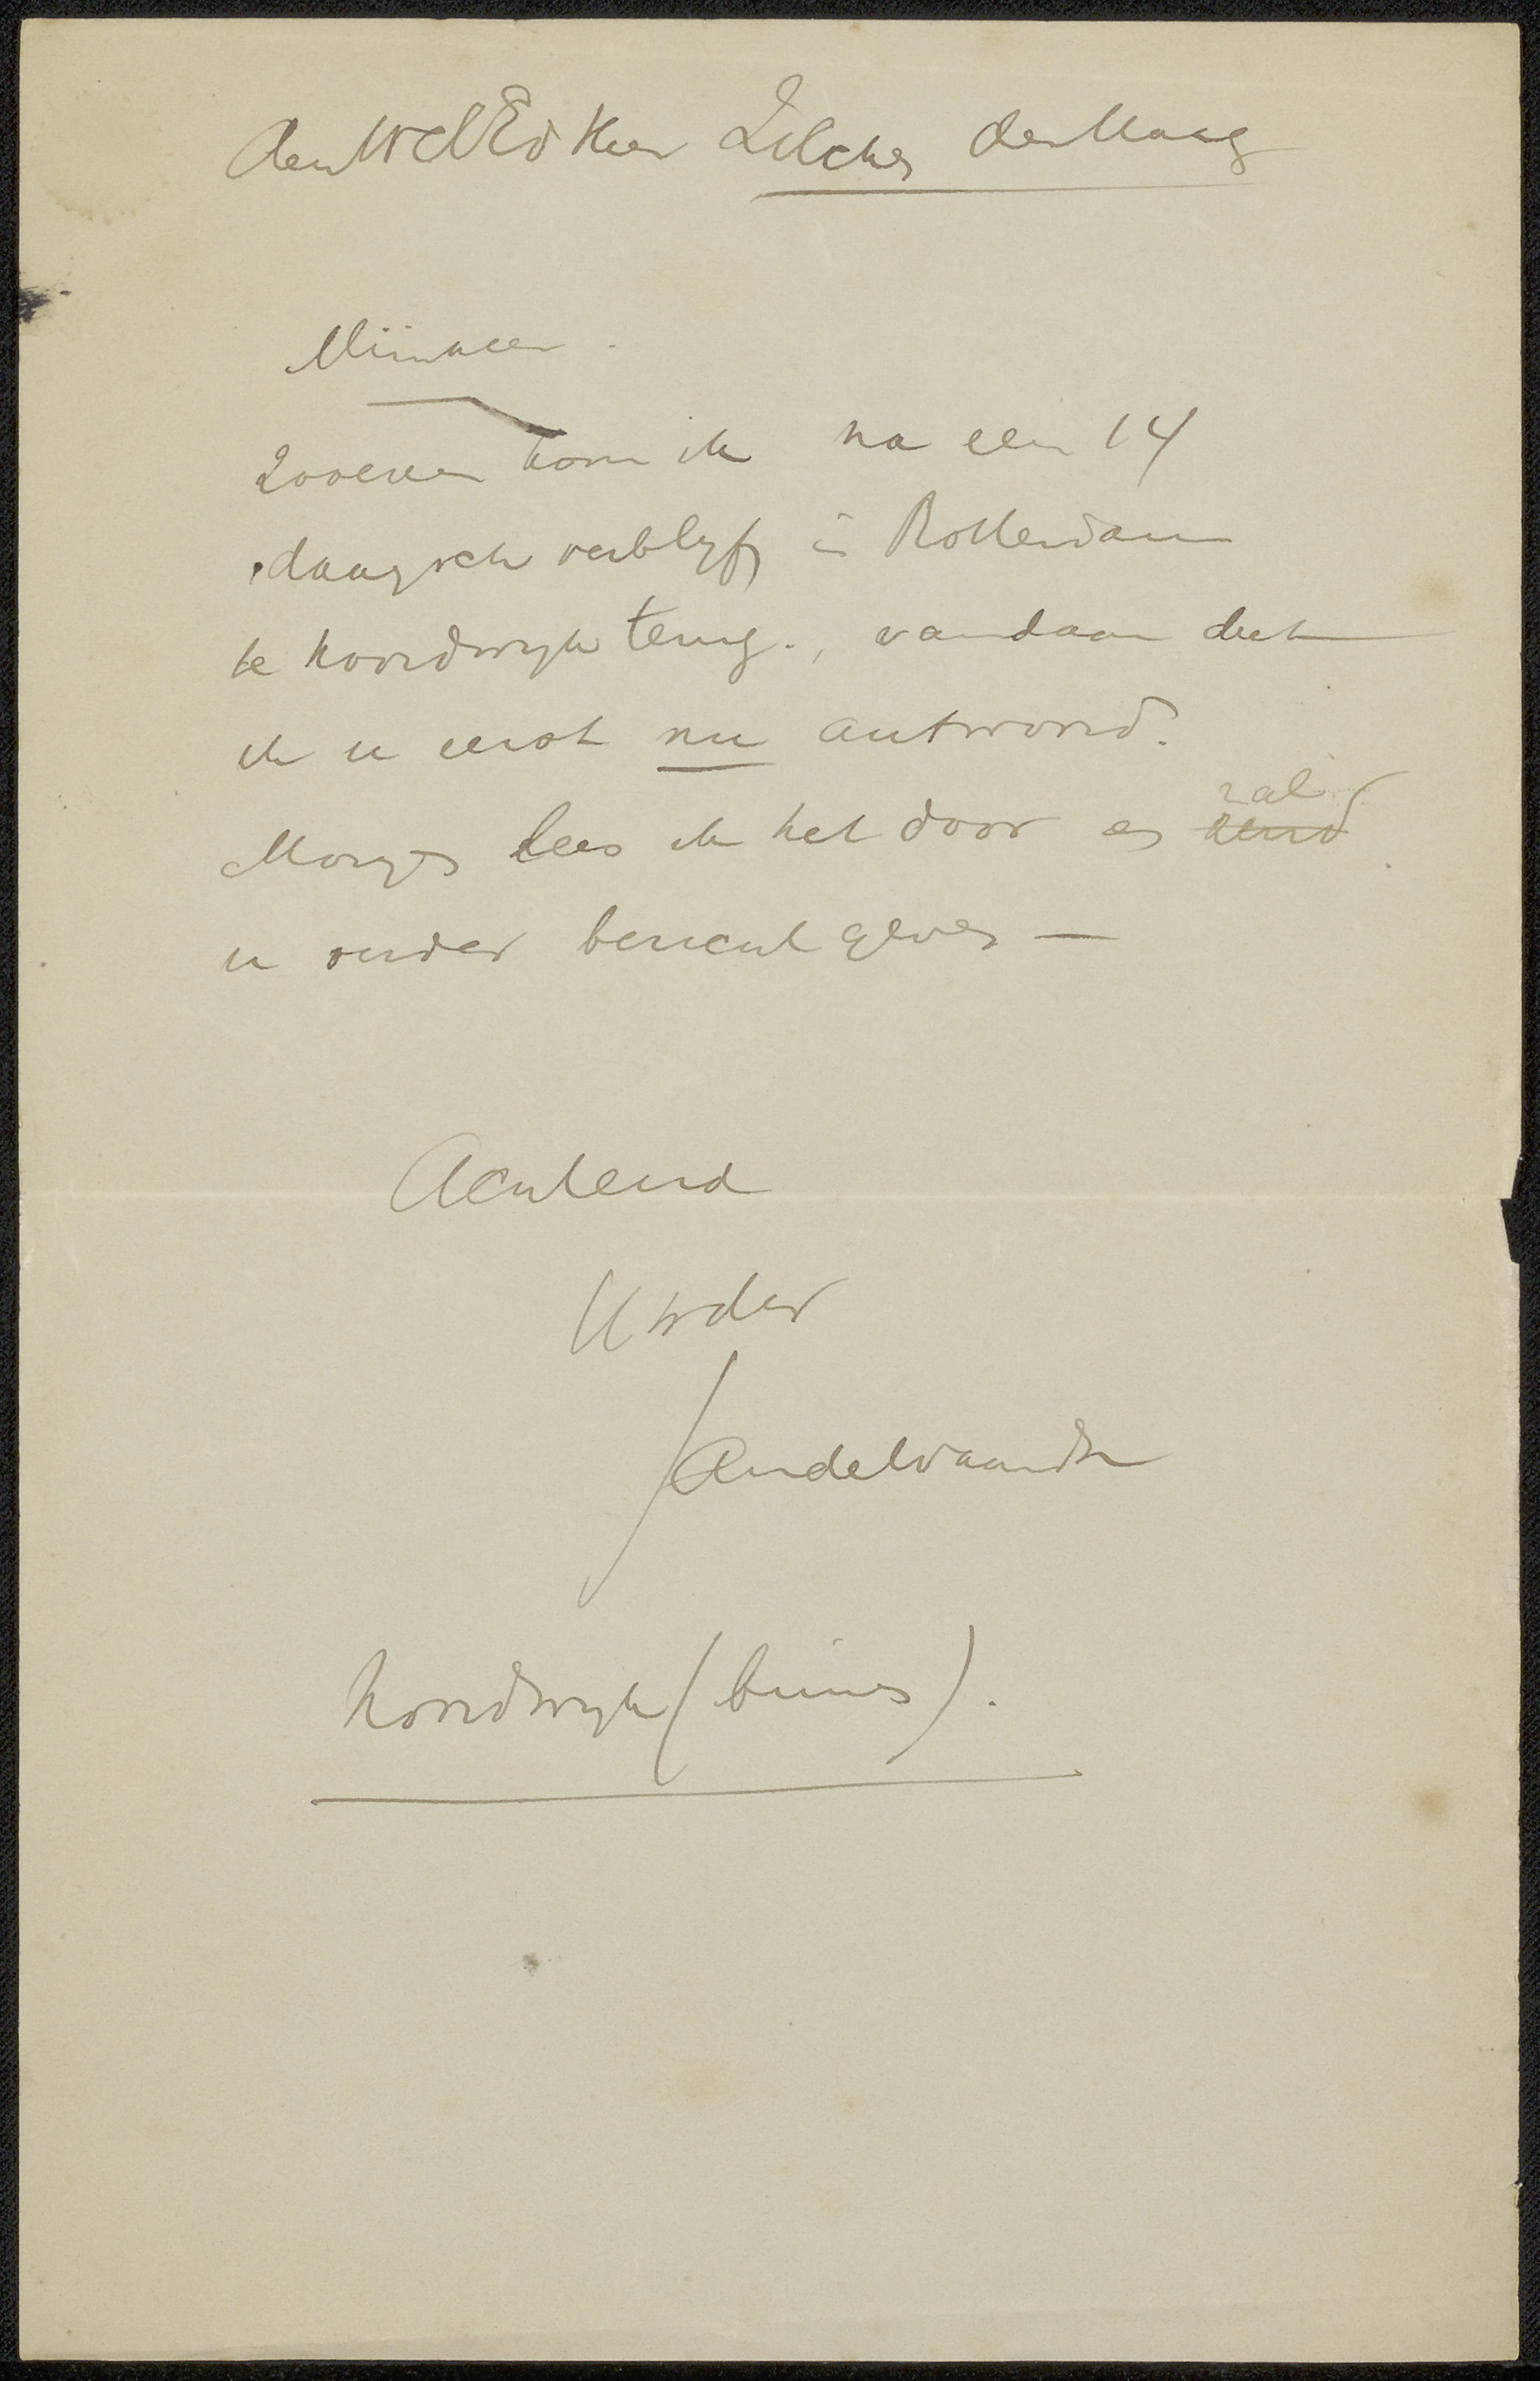 Den WelEd Heer Zilcken den Haag
Mijnheer.
Zooeven kom ik na een 14
daagsch verblyf in Rotterdam
te Noordwyk terug., vandaar dat
ik u eerst nu antwoord.
Morgen lees ik het door en zal
u verder bericht geven —
Achtend
Uwder
Noordwyk (binnen).